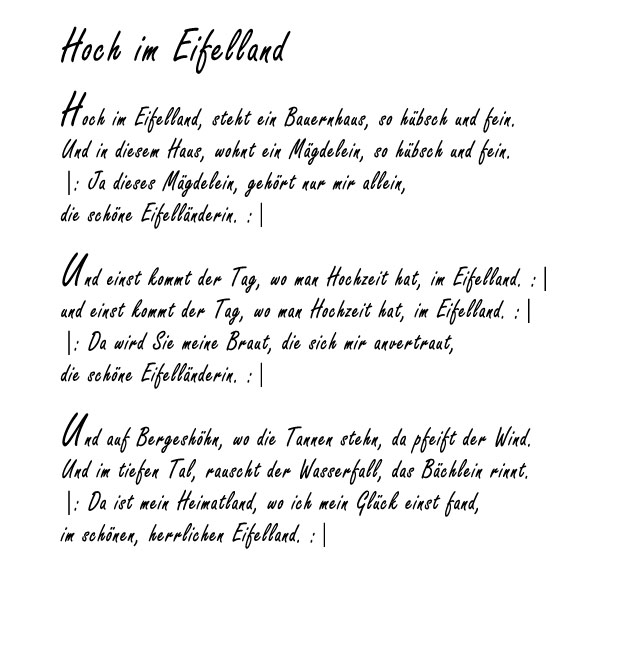 Hoch im Eifelland
Hoch im Eifelland, steht ein Bauernhaus, so hübsch und fein.
Und in diesem Haus, wohnt ein Mägdelein, so hübsch und fein.
|: Ja dieses Mägdelein, gehört nur mir allein,
die schöne Eifelländerin. : |
Und einst kommt der Tag, wo man Hochzeit hat, im Eifelland. : |
und einst kommt der Tag, wo man Hochzeit hat, im Eifelland. : |
|: Da wird Sie meine Braut, die sich mir anvertraut,
die schöne Eifelländerin. : |
Und auf Bergeshöhn, wo die Tannen stehn, da pfeift der Wind.
Und im tiefen Tal, rauscht der Wasserfall, das Bächlein rinnt.
|: Da ist mein Heimatland, wo ich mein Glück einst fand,
im schönen, herrlichen Eifelland. : |